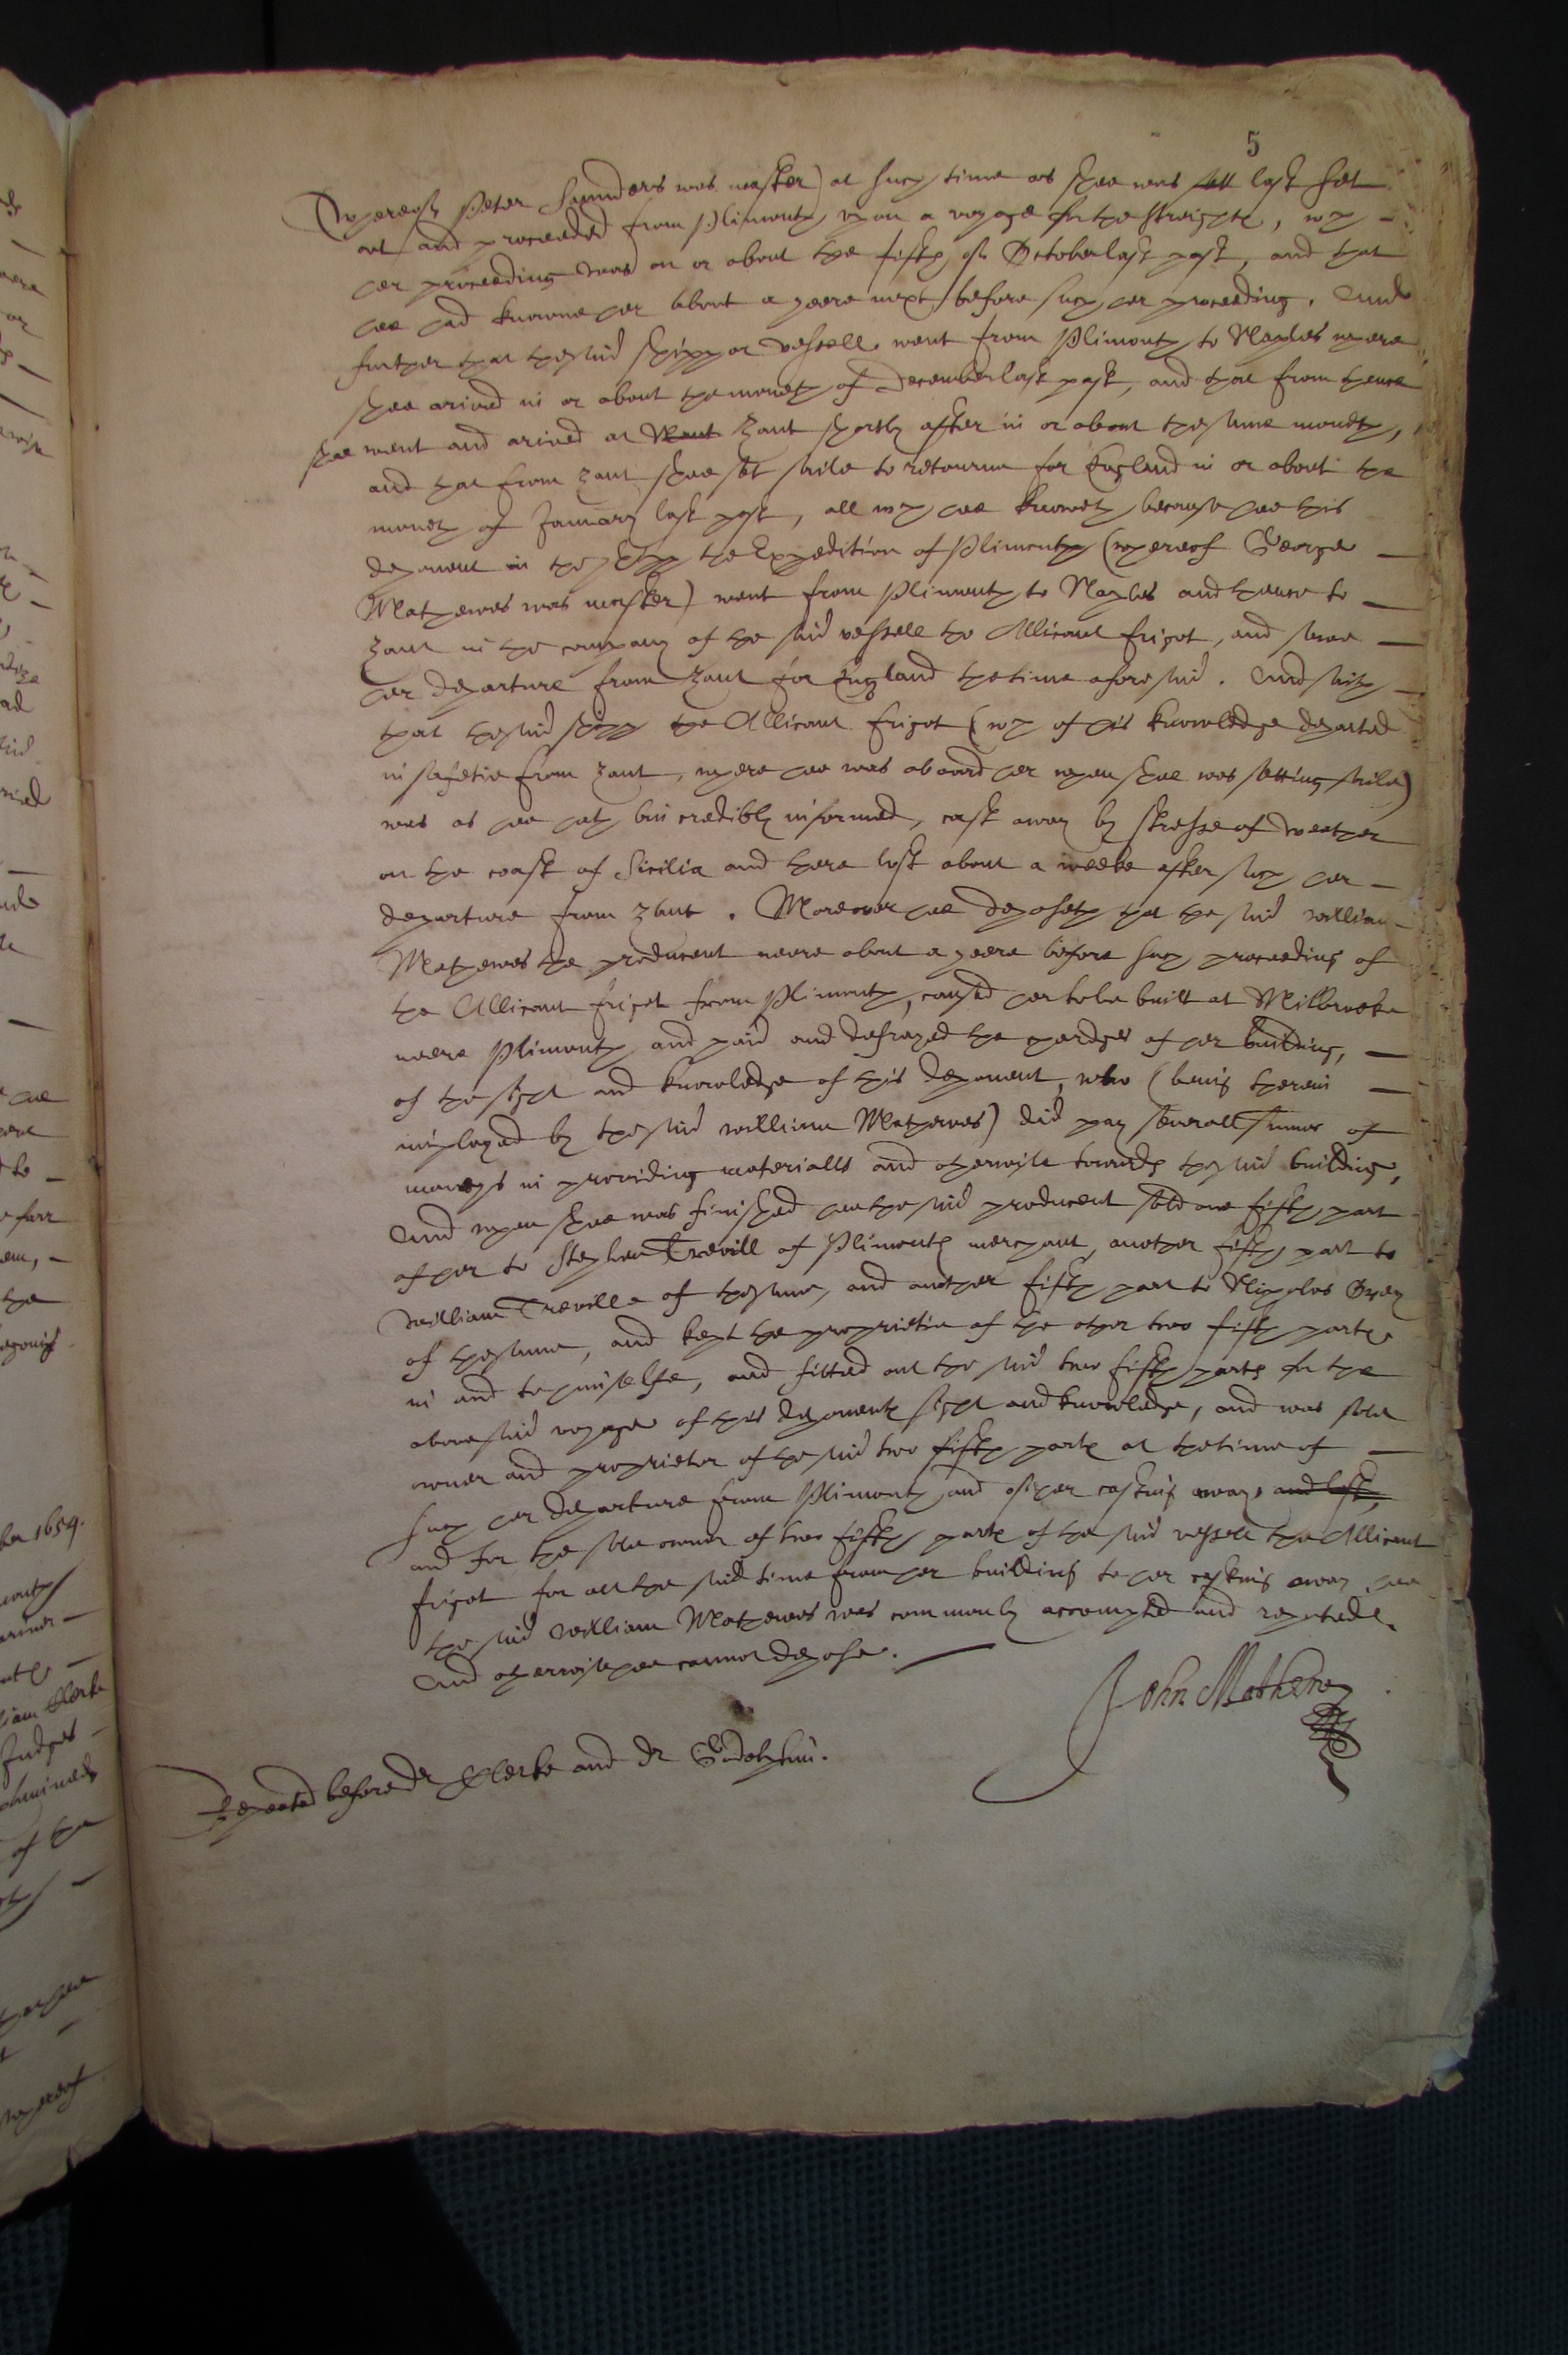 5
(whereof Peter Saunders was master) at such time as shee was sett last set
out and proceeded from Plimouth upon a voyage for the streights, wch
her proceeding was on or about the fifth of October last past, and that
hee had knowne her about a yeere next before such her proceeding. And
further that the said shipp or vessell went from Plimouth to Naples where
shee arived in or about the moneth of December last past, and that from thence
shee went and arived at Zant shortly after in or about the same moneth,
and that from Zant shee set saile to retourne for England in or about the
moneth of January last past, all wch hee knoweth because hee this
deponent in the shipp the Expedition of Plimouth (whereof George
Mathewes was master) went from Plimouth to Naples and thence to
Zant in the company of the said vessell the Allicant frigot, and sawe
her departure from Zant for England the time aforesaid. And saith
that the said shipp the Allicant frigot (wch of his knowledge departed
in safetie from Zant, where hee was aboard her when shee was setting saile)
was as hee hath bin credibly informed, cast away by stresse of weather
on the coast of Sicilia and there lost about a weeke after such her
departure from Zant. Moreover hee deposeth that the said william
Mathewes the producent neere about a yeere before such proceeding of
the Allicant frigot from Plimouth, caused her to be built at Milbrooke
neere Plimouth and paid and defrayed the chardges of her building,
of the sight and knowledge of this deponent, who (being therein
imployed by the said william Mathewes) did pay severall summes of
moneys in providing materialls and otherwise towards the said building,
And when shee was finished hee the said producent sold one fifth part
of her to Stephen Trevill of Plimouth merchant, another fifth part to
William Treville of the same, and another fifth part to Nicholas Opey
of the same, and kept the proprietie of the other two fifth parts
in and to himselfe, and fitted out the said two fifth parts for the
abovesaid voyage of this deponents sight and knowledge, and was sole
owner and proprietor of the said two fifth parts at the time of
such her departure from Plimouth and of her casting away and lost,
and for the sole owner of two fifth parts of the said vessell the Allicant
frigot for all the said time from her building to her casting away, hee
the said william Mathewes was commonly accompted and reputed.
And otherwise hee cannot depose.
John Mathew
Repeated before dr Clerke and dr Godolphin.